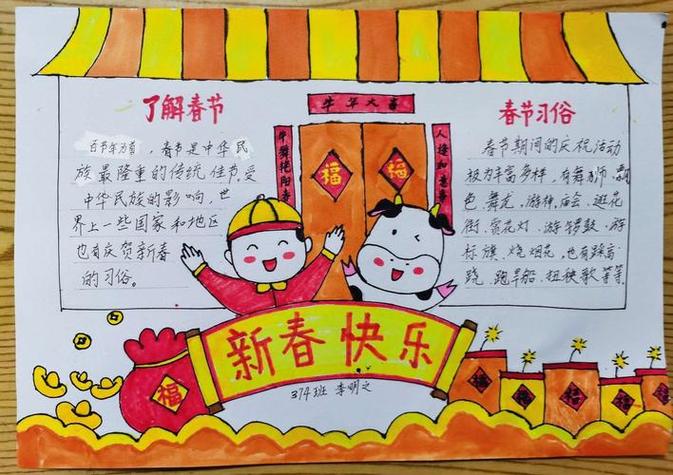 了解春节
百节年为首，春节是中华民
族最隆重的传统佳节受
中华民族的影响，世
界上一些国家和地区
也有庆贺新春
的习俗。
牛年大吉
牛舞艳阳春
人逢如意事
福
福
春节习俗
春节期间的庆祝活动
极为丰富多样，有舞狮、飘
色、舞龙、游神、庙会、逛花
街、赏花灯、游锣鼓、游
标旗、烧烟花，也有踩高
跷、跑旱船、扭秧歌等等
新春快乐
374班 李明之
福
福
福
福
福
福